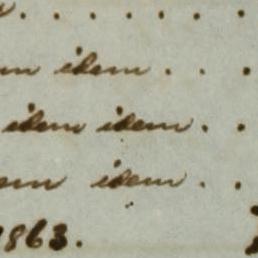 . . . . . .
idem . . .
idem idem . .
idem . .
1863.